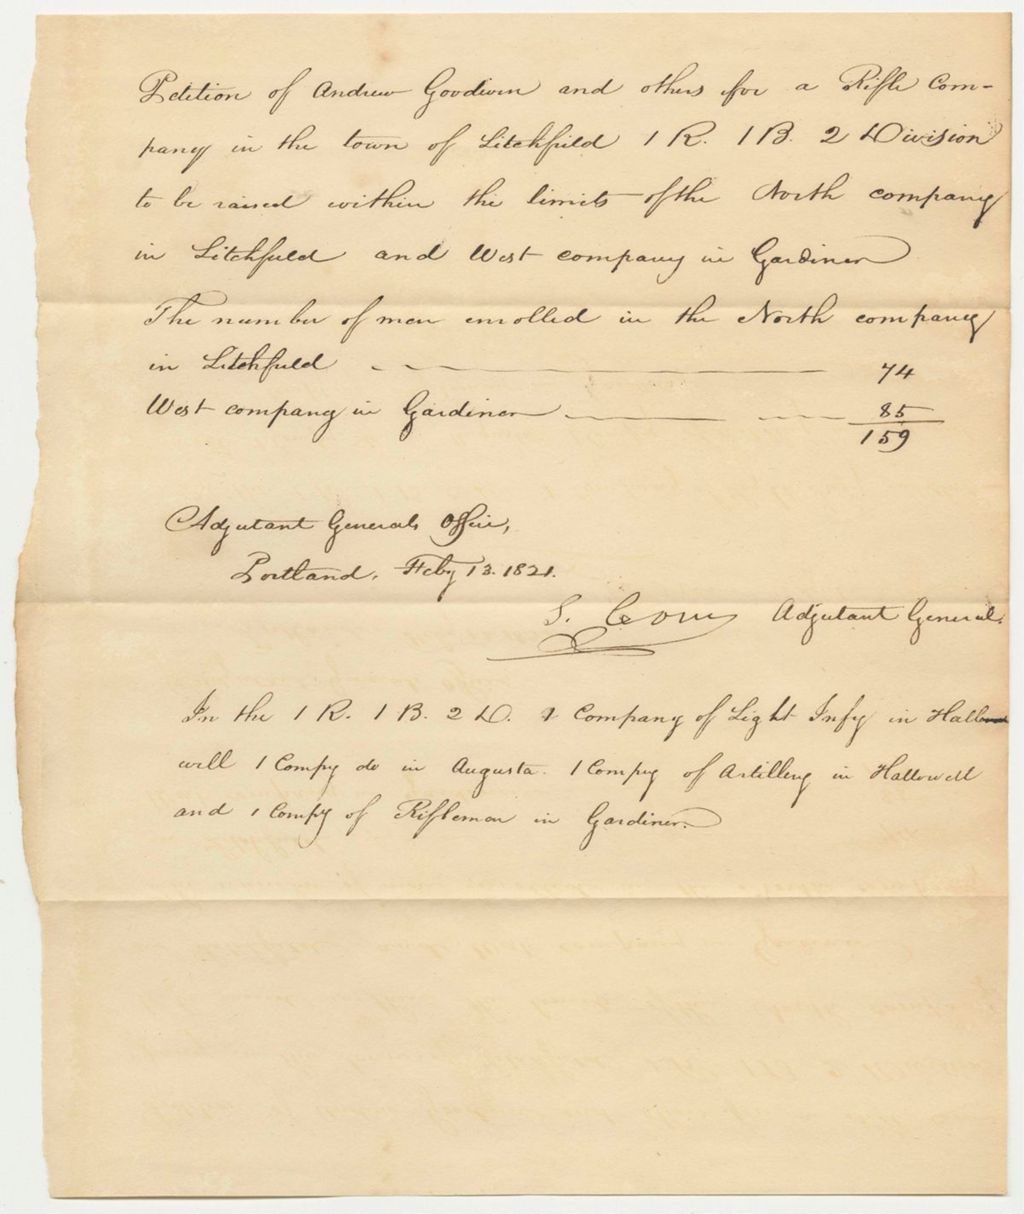 Petition of Andrew Goodwin and others for a Rifle Com-
pany in the town of Litchfield 1 R. 1 B. 2 Division
to be raised within the limits of the North company
in Litchfield and West company in Gardiner
The number of men enrolled in the North company
in Litchfield — 74
West company in Gardiner — 85
159
Adjutant Generals Office,
Portland, Feby 13. 1821.
S. Cony Adjutant General.
In the 1 R. 1 B. 2 D. 1 Company of Light Infy in Hallo
well 1 Compy do in Augusta. 1 Compy of Artillery in Hallowell
and 1 Compy of Riflemen in Gardiner.